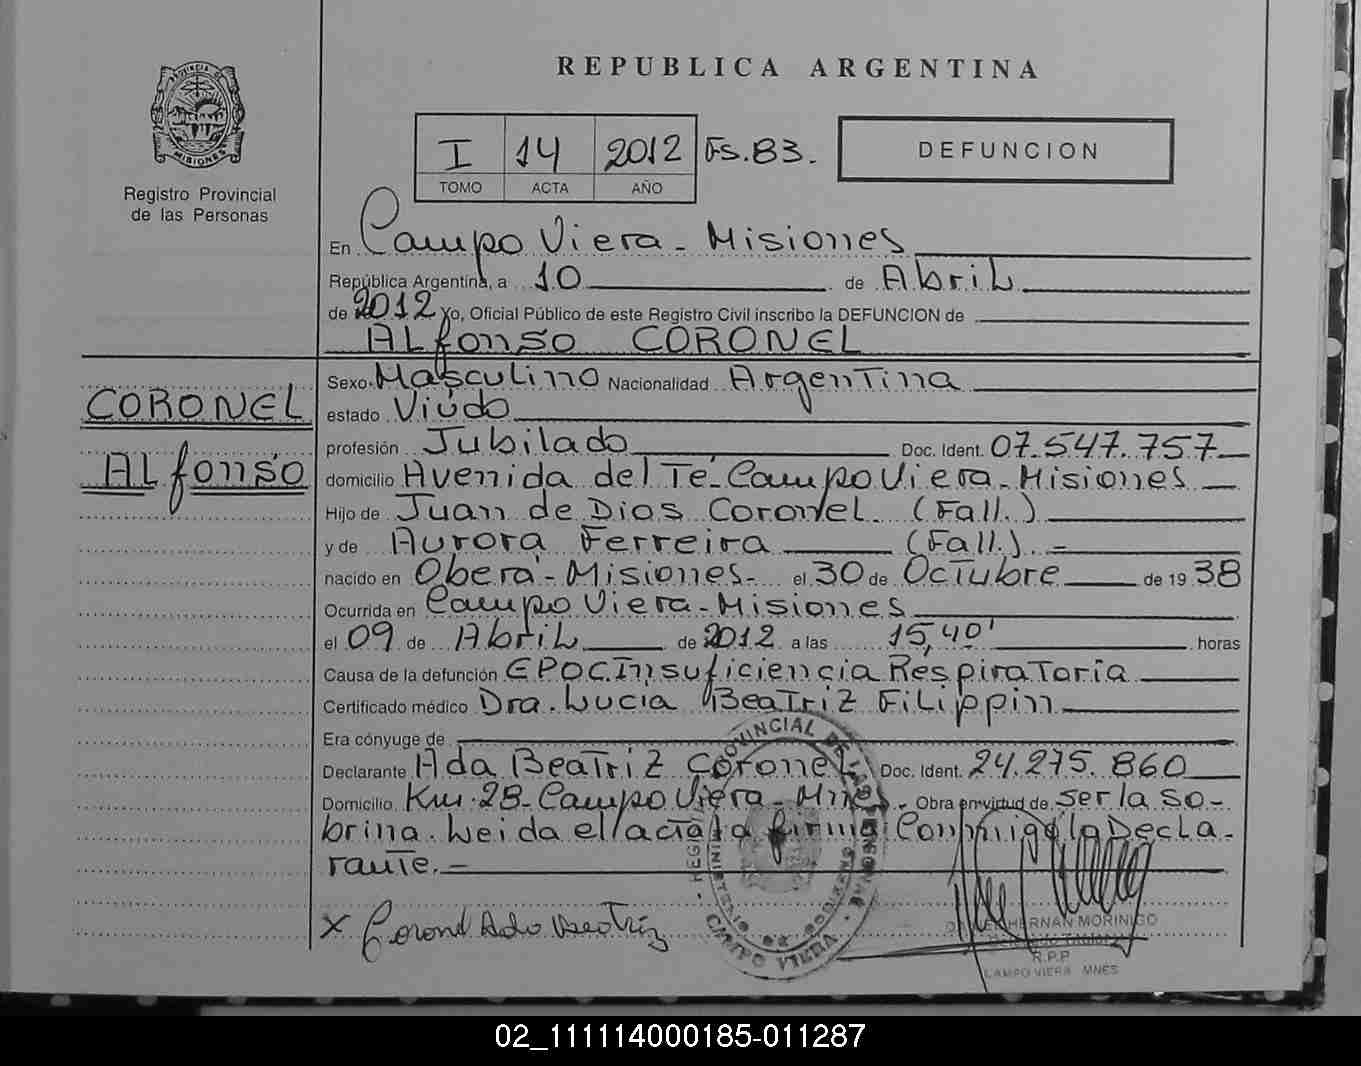 REPUBLICA ARGENTINA
PROVINCIA DE MISIONES
Registro Provincial
de las Personas
I 14 2012 Fs.83.
TOMO ACTA AÑO
DEFUNCION
En Campo Viera - Misiones
República Argentina, a 10 de Abril
de 2012 Yo, Oficial Público de este Registro Civil inscribo la DEFUNCION de
Alfonso CORONEL
CORONEL
Alfonso
Sexo Masculino Nacionalidad Argentina
estado Viudo
profesión Jubilado Doc. Ident. 07.547.757
domicilio Avenida del Té - Campo Viera - Misiones
Hijo de Juan de Dios Coronel. (Fall.)
y de Aurora Ferreira (Fall.) -
nacido en Oberá - Misiones - el 30 de Octubre de 1938
Ocurrida en Campo Viera - Misiones
el 09 de Abril de 2012 a las 15,40' horas
Causa de la defunción EPOC. Insuficiencia Respiratoria
Certificado médico Dra. Lucia Beatriz Filippin
Era cónyuge de
Declarante Ada Beatriz Coronel Doc. Ident. 24.275.860
Domicilio Km. 28 - Campo Viera - Mnes - Obra en virtud de ser la so-
brina. Leida el acta la firma Conmigo la Decla-
rante. -
X Coronel Ada Beatriz
REGISTRO PROVINCIAL DE LAS PERSONAS
MINISTERIO DE GOBIERNO
CAMPO VIERA
HERNAN MORINIGO
R.P.P
CAMPO VIERA MNES
02_111114000185-011287